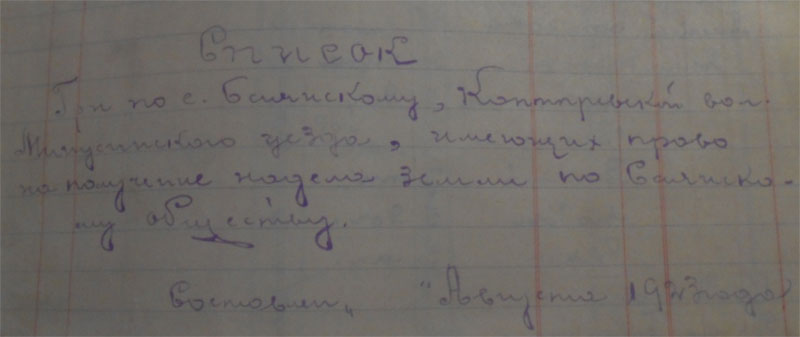 Список
Гр-н по с. Саянскому, Коптыревской вол.
Минусинского уезда, имеющих право
на получение надела земли по Саянско-
му обществу.
Составлен „ " Августа 1923 года